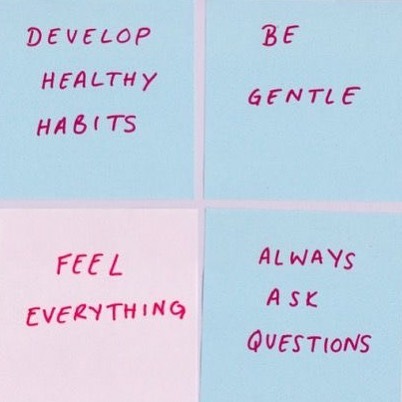 DEVELOP
HEALTHY
HABITS
BE
GENTLE
FEEL
EVERYTHING
ALWAYS
ASK
QUESTIONS